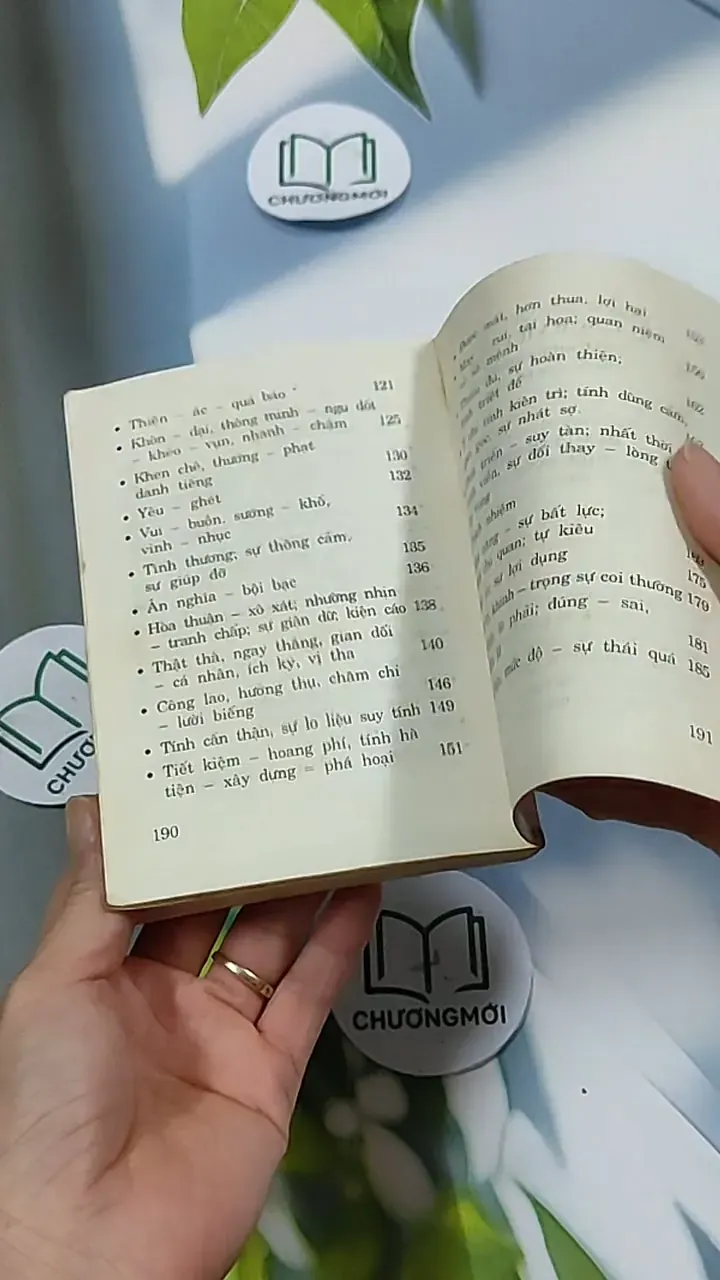 CHƯƠNGMỚI
• Thiện – ác – quả báo 121
• Khôn – dại, thông minh – ngu dốt
– khéo – vụn, nhanh – chậm 125
• Khen chê, thưởng – phạt 130
danh tiếng 132
• Yêu – ghét
• Vui – buồn, sướng – khổ, 134
vinh – nhục
• Tình thương, sự thông cảm, 135
sự giúp đỡ 136
• Ân nghĩa – bội bạc
• Hòa thuận – xô xát; nhường nhịn
– tranh chấp; sự giận dữ; kiện cáo 138
• Thật thà, ngay thẳng, gian dối
– cá nhân, ích kỷ, vị tha 140
• Công lao, hưởng thụ, chăm chỉ
– lười biếng 146
• Tính cẩn thận, sự lo liệu suy tính 149
• Tiết kiệm – hoang phí, tính hà
tiện – xây dựng = phá hoại 151
190
mất, hơn thua, lợi hại
rủi, tai họa; quan niệm
mệnh
đủ, sự hoàn thiện;
triệt để
kiên trì; tính dũng cảm,
sự nhát sợ
– suy tàn; nhất thời
sự đổi thay – lòng
nhiệm
– sự bất lực;
quan; tự kiêu
sự lợi dụng 175
– trọng sự coi thường 179
phải; đúng – sai,
181
mức độ – sự thái quá 185
191
CHƯƠNG
CHƯƠNGMỚI